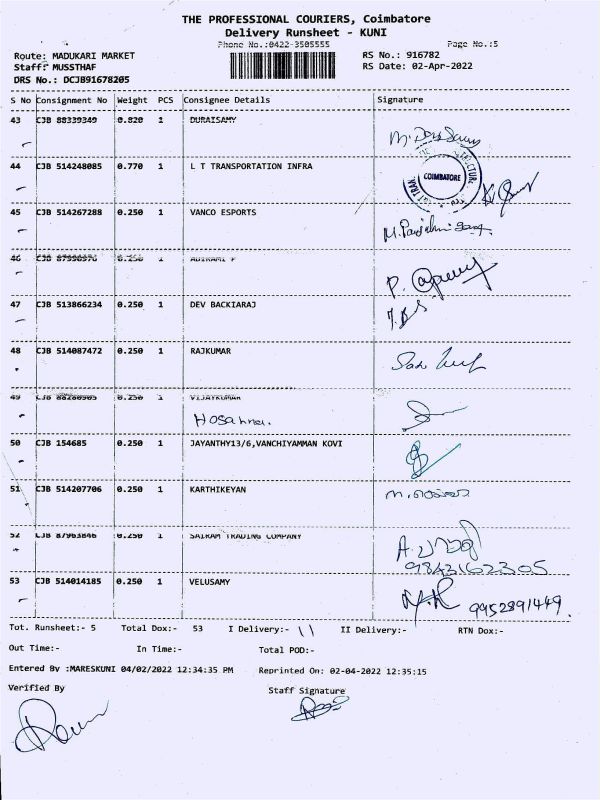 THE PROFESSIONAL COURIERS, Coimbatore
Delivery Runsheet - KUNI
Phone No.:0422-3505555 Page No.:5
Route: MADUKARI MARKET RS No.: 916782
Staff: MUSSTHAF RS Date: 02-Apr-2022
DRS No.: DCJB91678205
S No Consignment No Weight PCS Consignee Details Signature
43 CJB 88339349 0.820 1 DURAISAMY
44 CJB 514248085 0.770 1 L T TRANSPORTATION INFRA
COIMBATORE
45 CJB 514267288 0.250 1 VANCO ESPORTS
46 CJB 0.250 1 ADIRAMI P
47 CJB 513866234 0.250 1 DEV BACKIARAJ
48 CJB 514087472 0.250 1 RAJKUMAR
49 CJB 88280905 0.250 1 VIJAYKUMAR
50 CJB 154685 0.250 1 JAYANTHY13/6,VANCHIYAMMAN KOVI
51 CJB 514207706 0.250 1 KARTHIKEYAN
52 CJB 87963846 0.250 1 SAIRAM TRADING COMPANY
9843162305
53 CJB 514014185 0.250 1 VELUSAMY
9952891449.
Tot. Runsheet:- 5 Total Dox:- 53 I Delivery:- 11 II Delivery:- RTN Dox:-
Out Time:- In Time:- Total POD:-
Entered By :MARESKUNI 04/02/2022 12:34:35 PM Reprinted On: 02-04-2022 12:35:15
Verified By Staff Signature